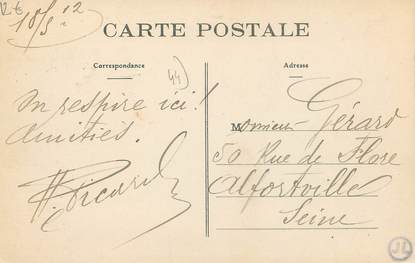 CARTE POSTALE
Correspondance
On respire ici!
Amitiés.
H. Picard
Adresse
Monsieur Gérard
50 Rue de Flore
Alfortville
Seine